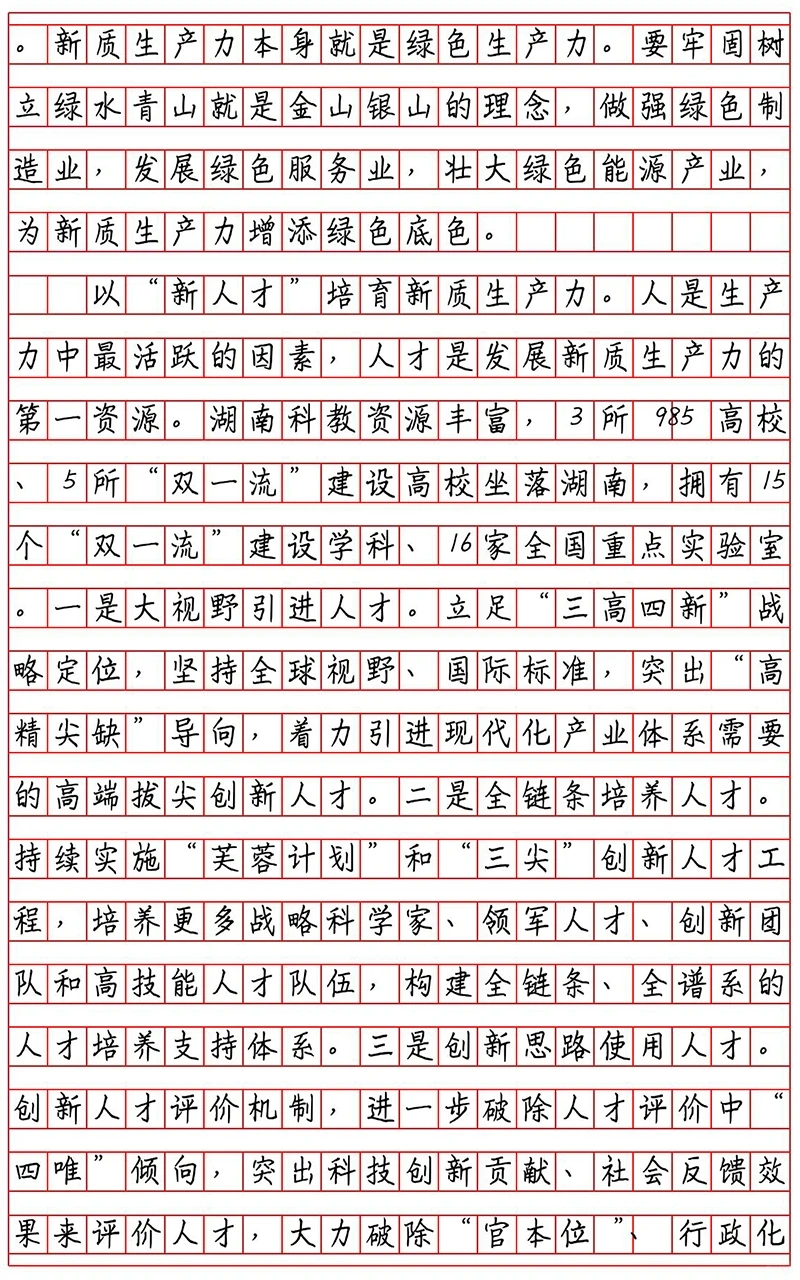 。新质生产力本身就是绿色生产力。要牢固树
立绿水青山就是金山银山的理念，做强绿色制
造业，发展绿色服务业，壮大绿色能源产业，
为新质生产力增添绿色底色。
以“新人才”培育新质生产力。人是生产
力中最活跃的因素，人才是发展新质生产力的
第一资源。湖南科教资源丰富，3所985高校
、5所“双一流”建设高校坐落湖南，拥有15
个“双一流”建设学科、16家全国重点实验室
。一是大视野引进人才。立足“三高四新”战
略定位，坚持全球视野、国际标准，突出“高
精尖缺”导向，着力引进现代化产业体系需要
的高端拔尖创新人才。二是全链条培养人才。
持续实施“芙蓉计划”和“三尖”创新人才工
程，培养更多战略科学家、领军人才、创新团
队和高技能人才队伍，构建全链条、全谱系的
人才培养支持体系。三是创新思路使用人才。
创新人才评价机制，进一步破除人才评价中“
四唯”倾向，突出科技创新贡献、社会反馈效
果来评价人才，大力破除“官本位”、行政化